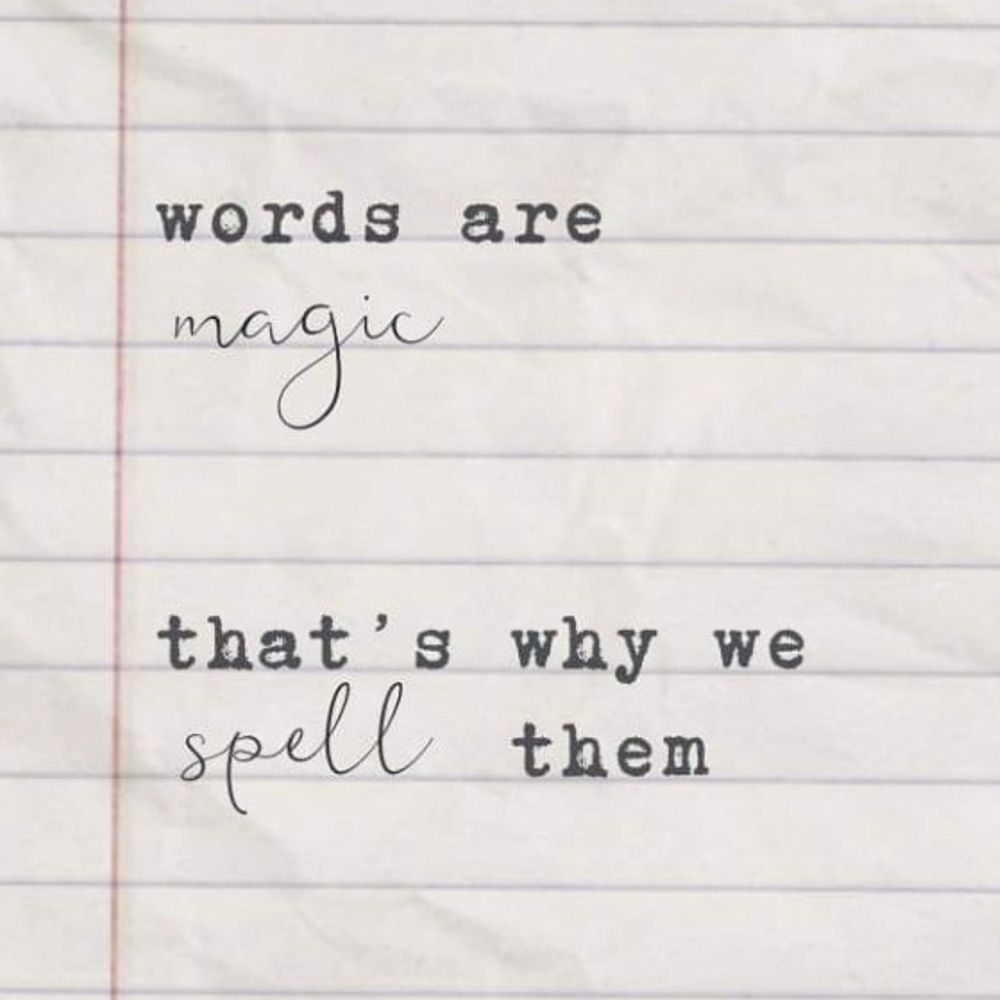 words are
magic
that's why we
spell them